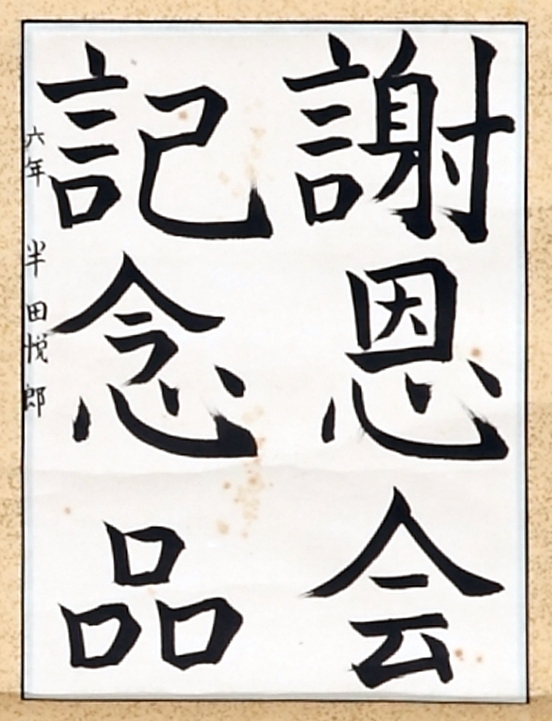 謝恩会
記念品
六年 半田悦郎